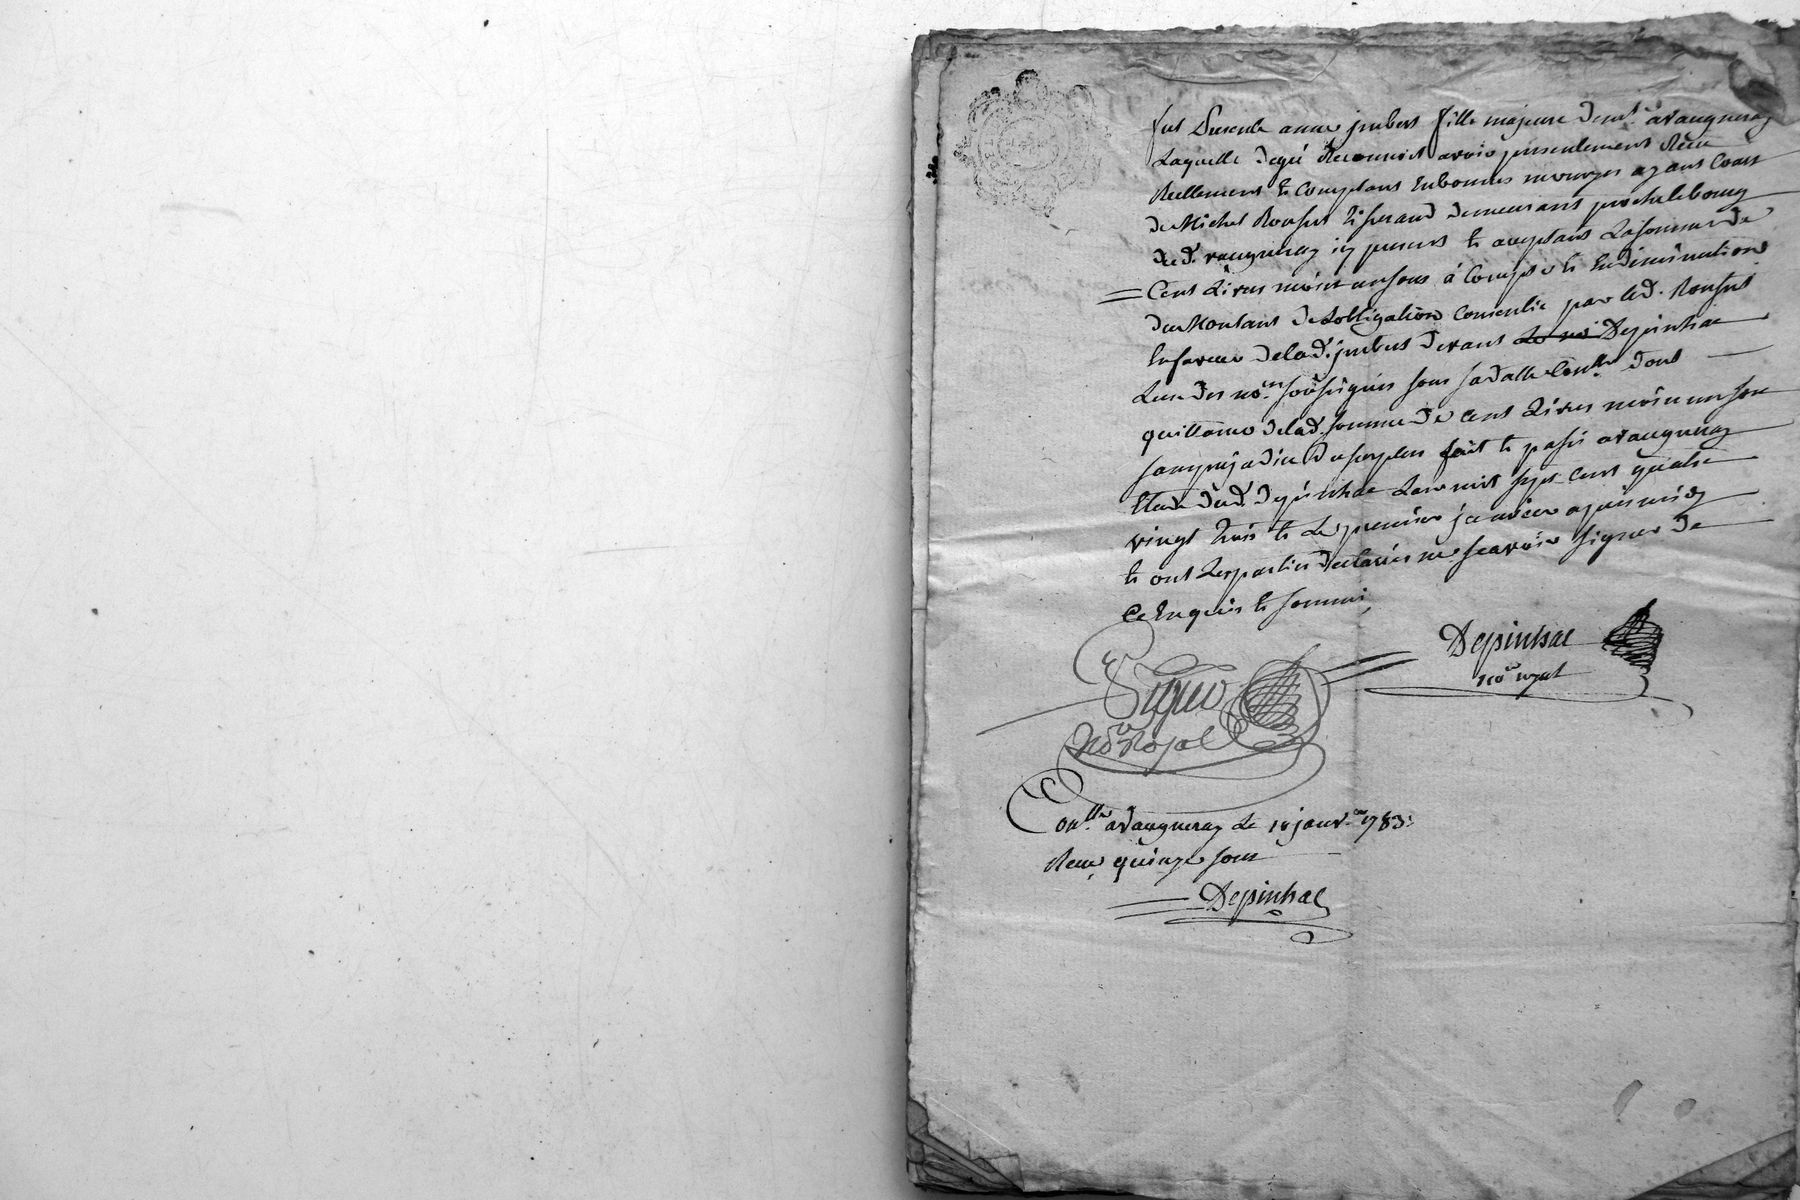 fut presente anne jmbert fille majeure demt. a vaugneray
Laquelle degré Reconnoit avoir presentement Reçu
Reellement et Comptant En bonnes monoyes ayant Cours
de Michel Ronsut tisserand demeurant proche le bourg
dud. vaugneray icy present et acceptant La somme de
Cent Livres moins un sous à Compte et En diminution
du Montant de Lobligation Consentie par led. Ronsut
En faveur de lad. jmbert devant Depinhac
Lun des nores soussignés sous sa datte Contlée dont
quittance de lad. somme de Cent Livres moins un sou
sans prejudice du surplus fait et passé a vaugneray
Etude dud. Depinhac Lan mil sept cent quatre
vingt trois et Le premier janvier apres midy
et ont Les parties declarées ne scavoir signer de
ce Enquis et sommé,
Depinhac
nore royal
Nore Royal
Contlé a Vaugneray Le 10 janver 1783:
Reçu quinze sous
Depinhac